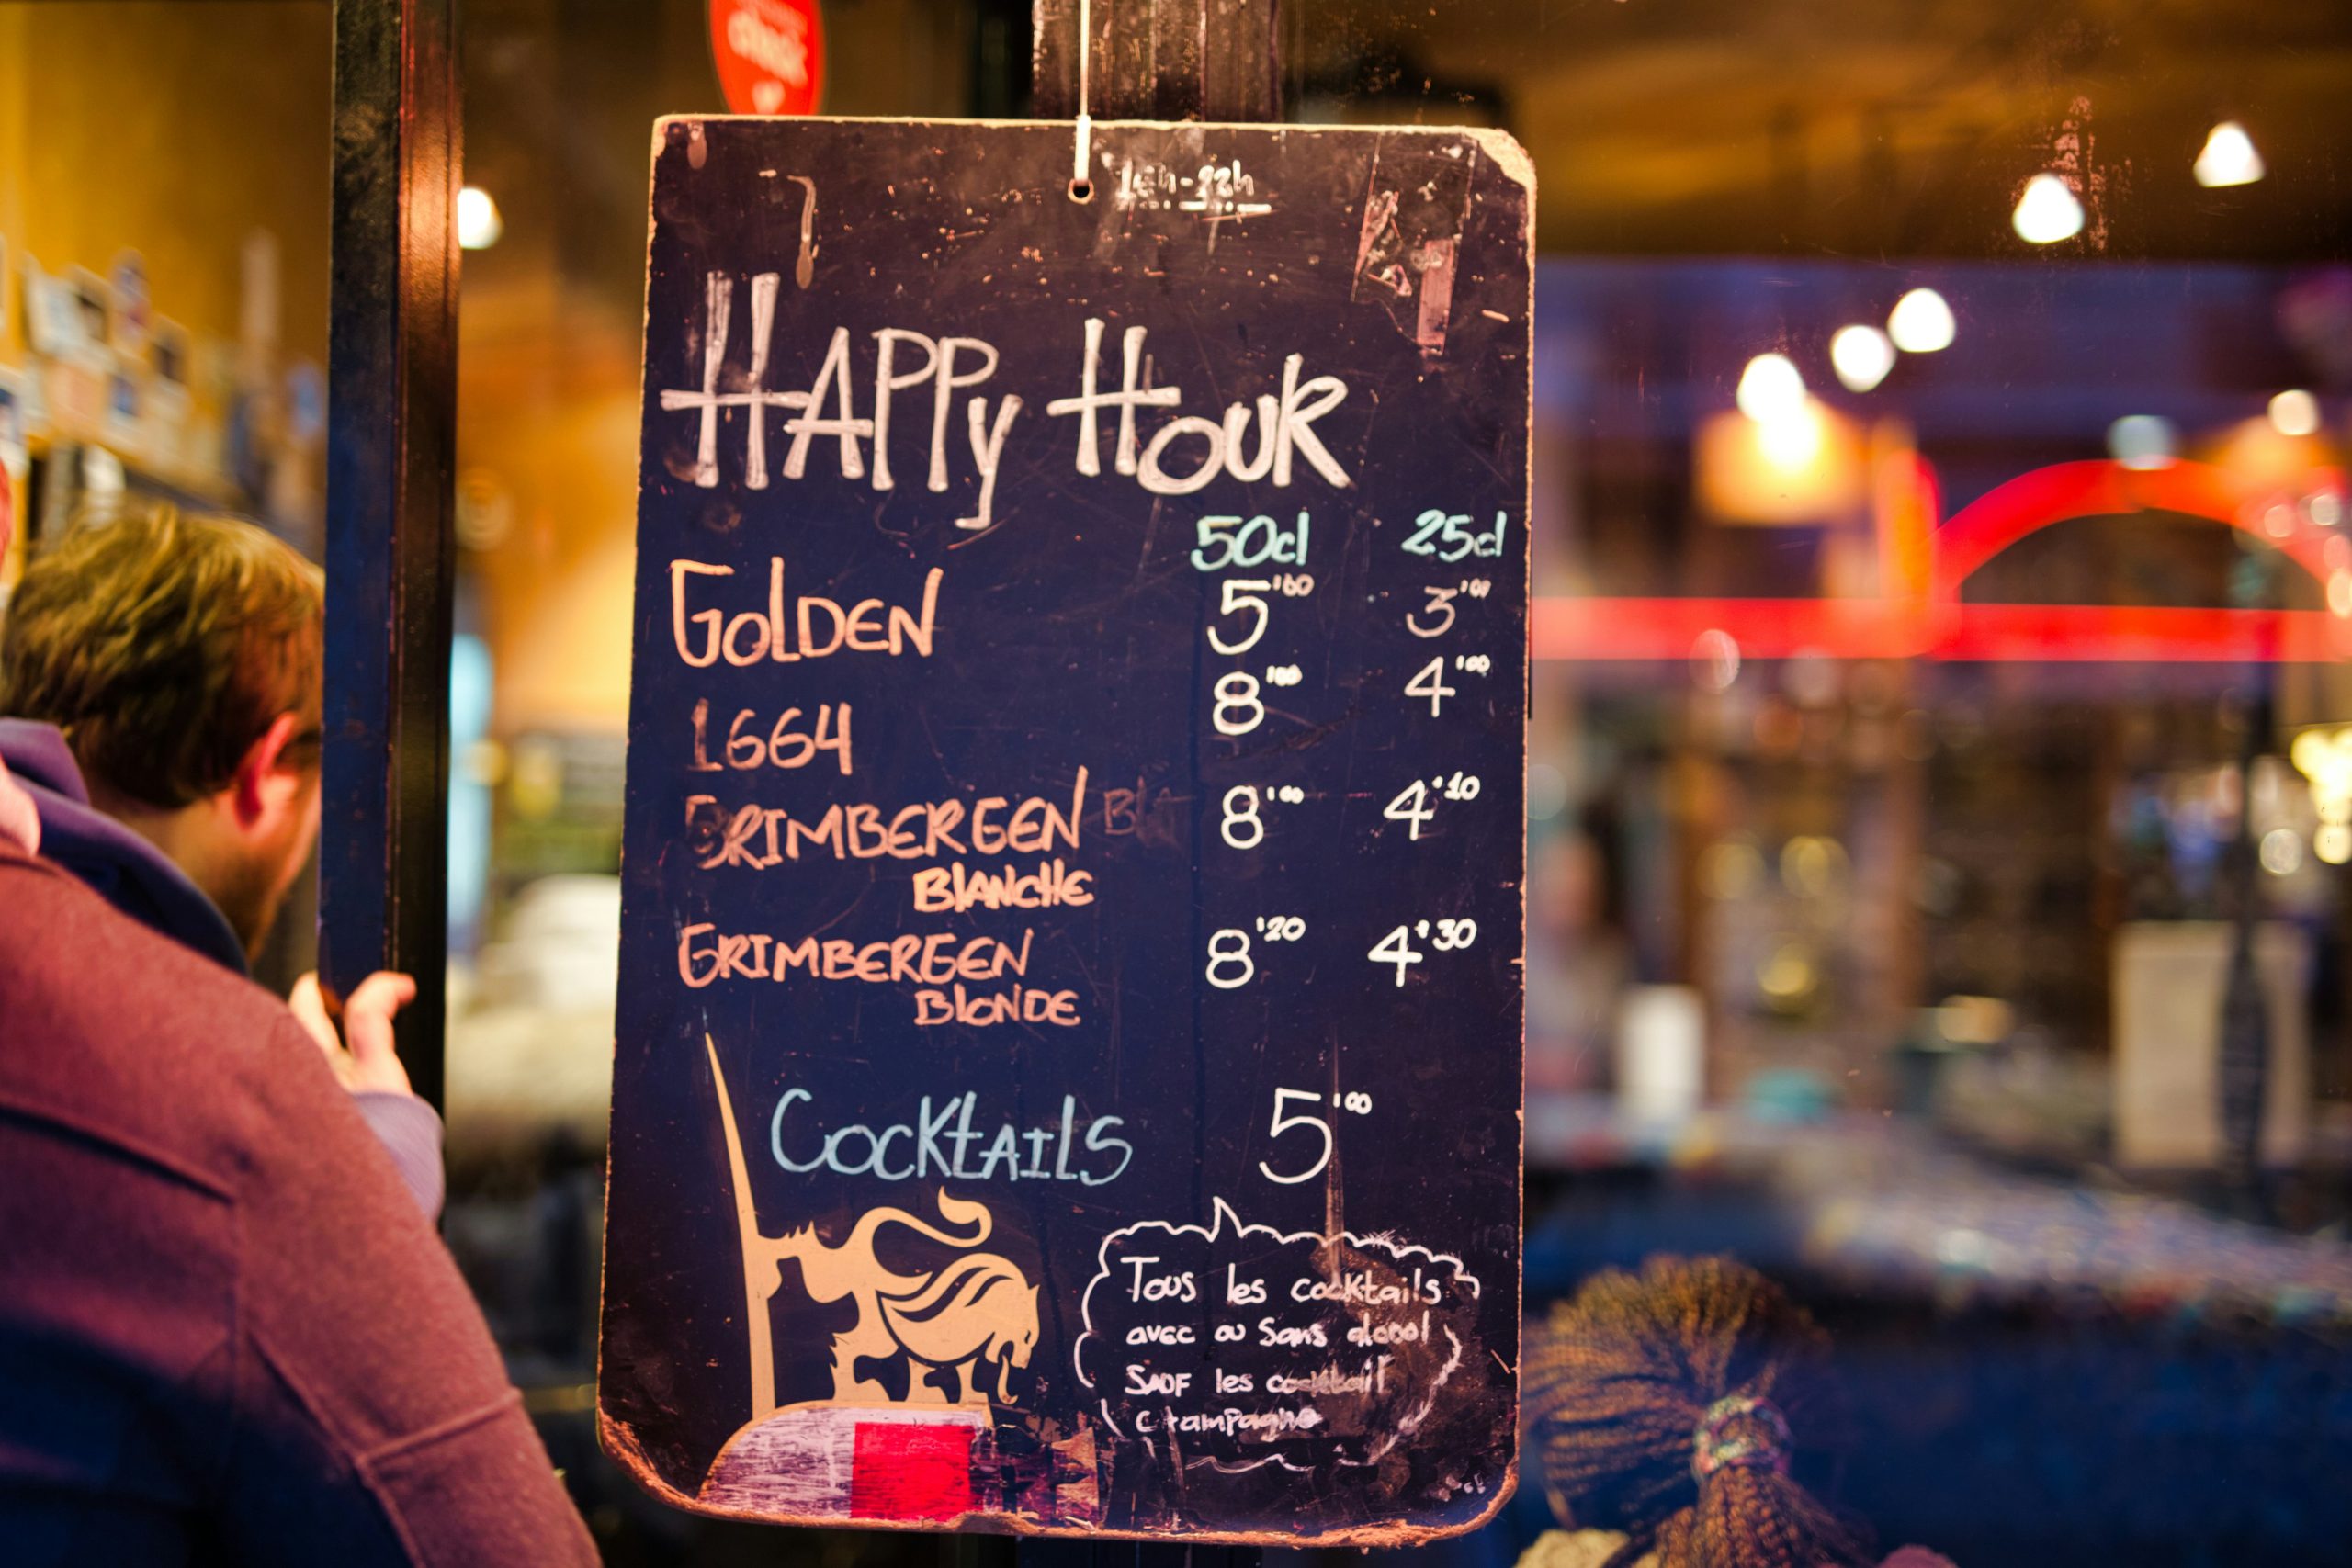 HAPPy HouR
50cl 25cl
GolDEN 5'00 3'00
1664 8'00 4'00
GRIMBERGEN 8'00 4'10
BlANCHE
GRIMBERGEN 8'20 4'30
BlONDE
COCKtAIlS 5'00
Tous les cocktails
avec ou Sans alcool
SAUF les cocktail
Champagne